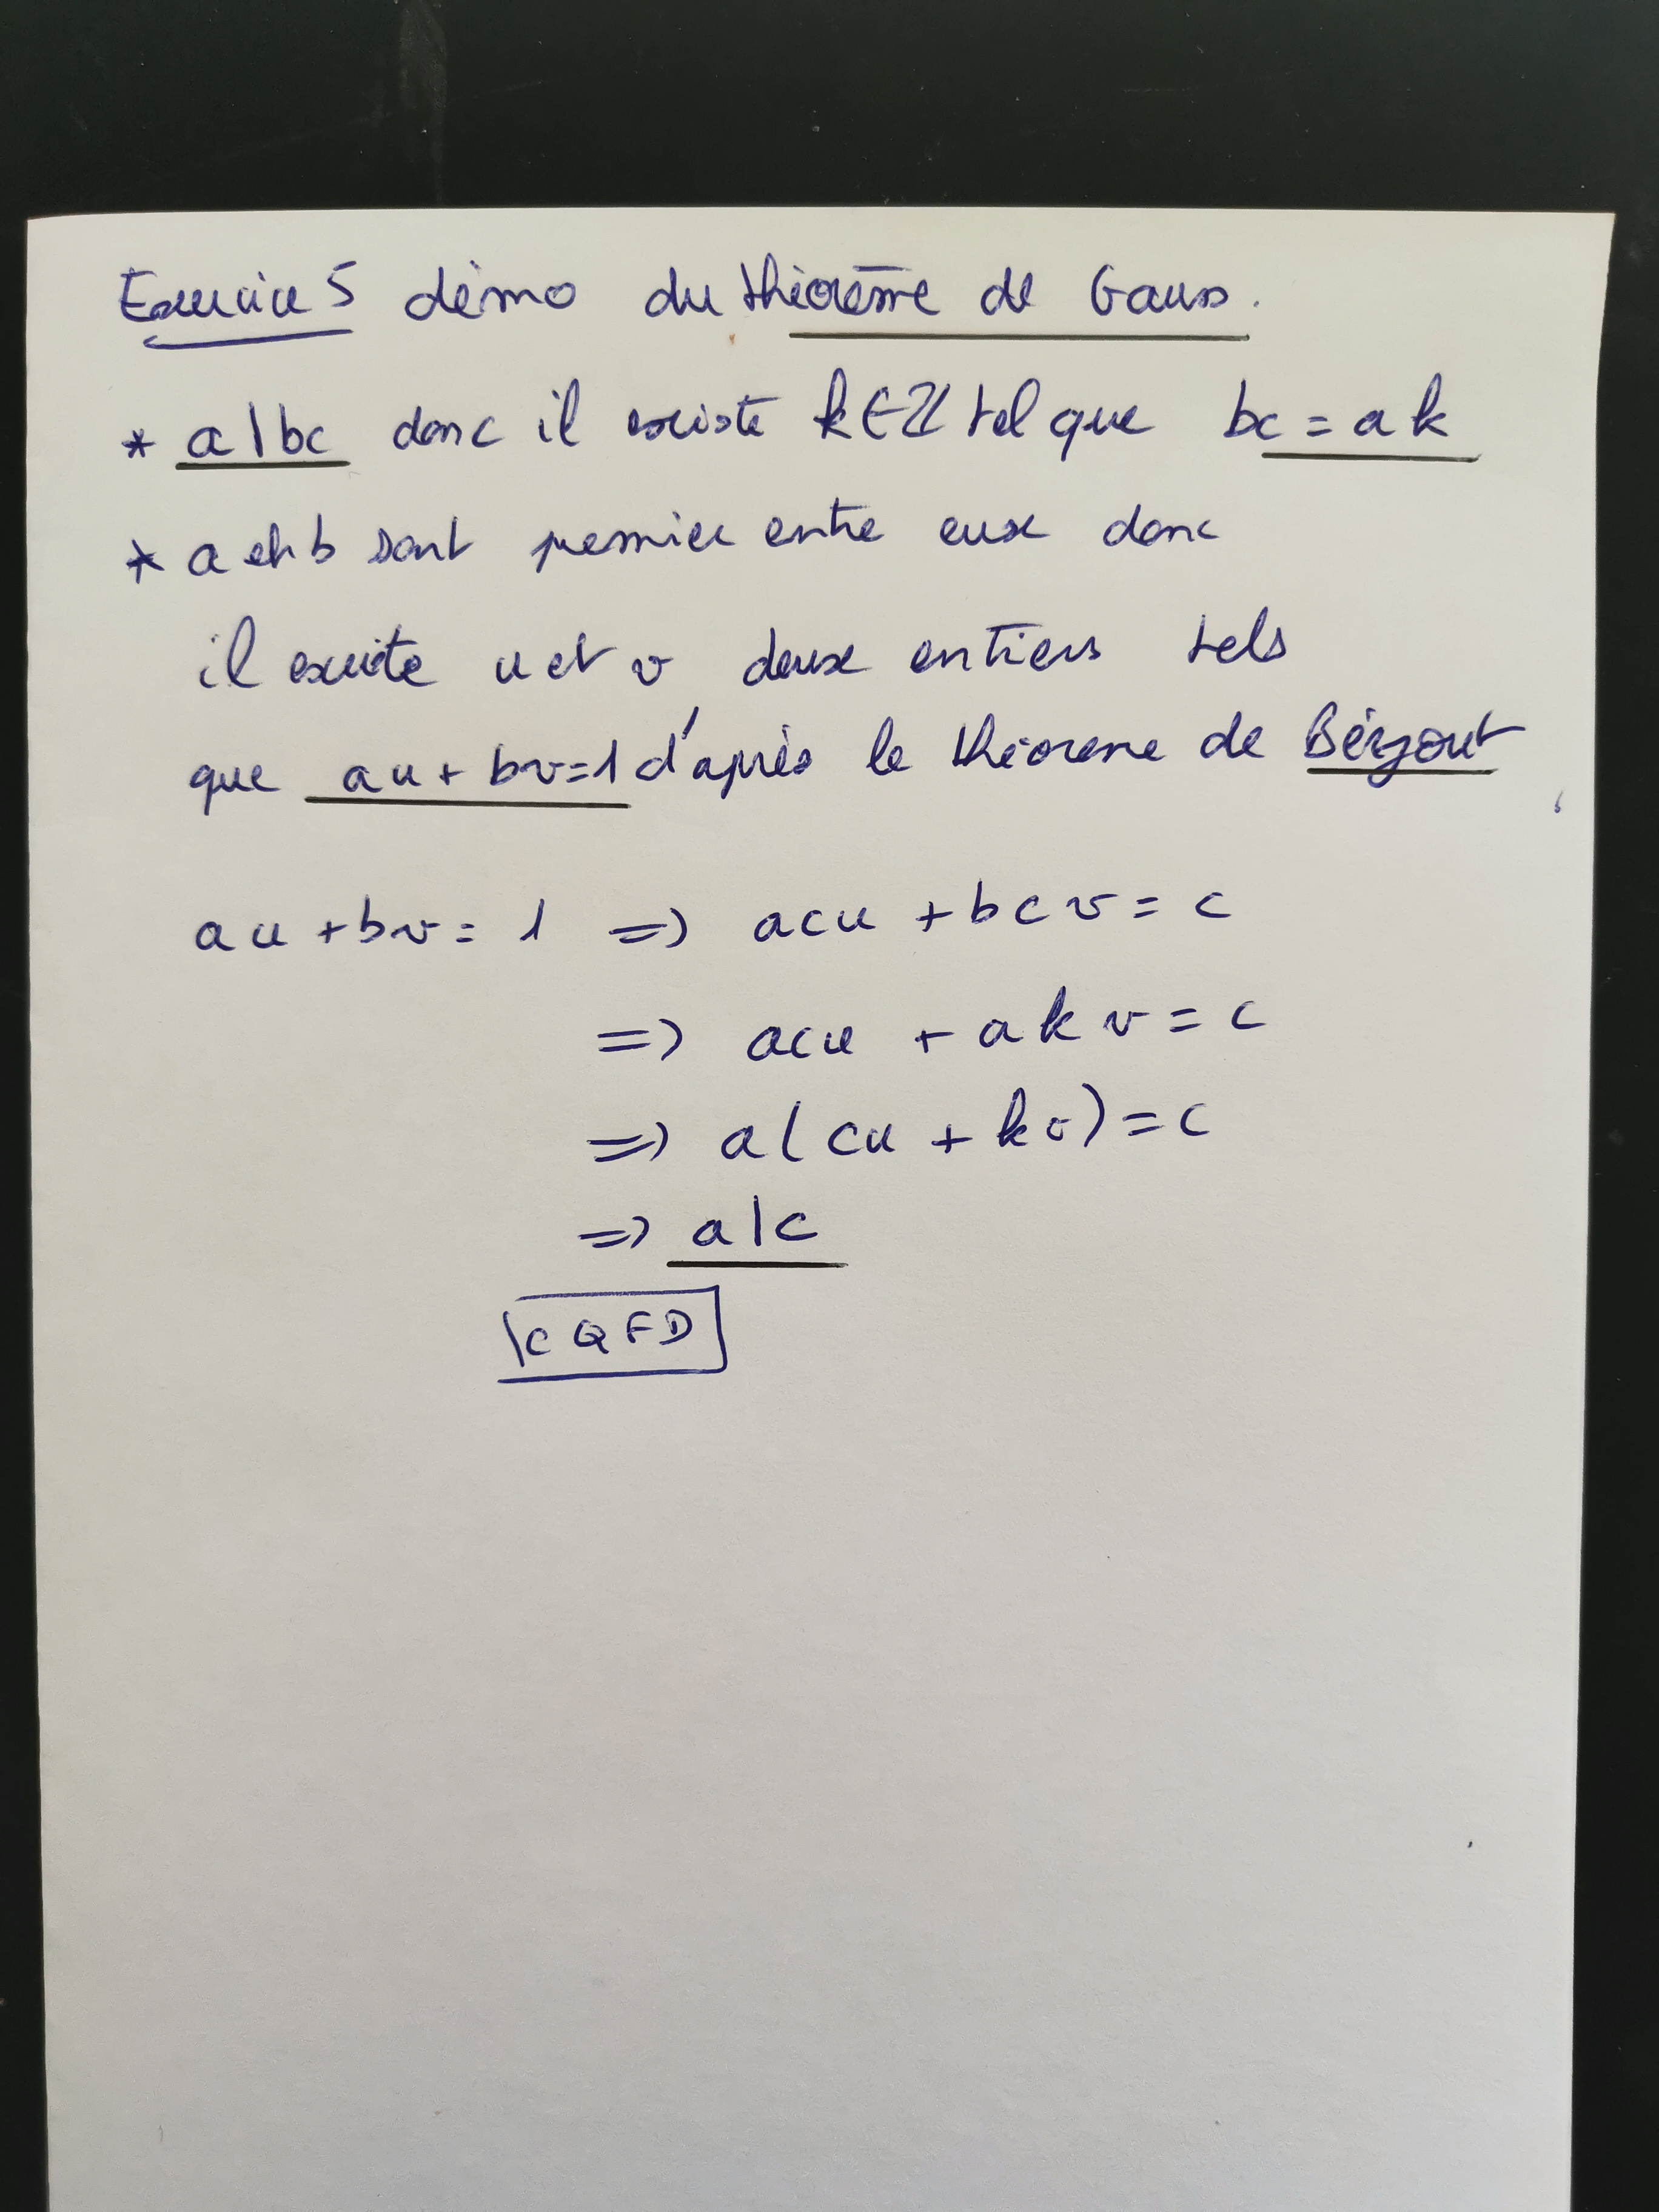 Exercice 5 démo du théorème de Gauss.
* a|bc donc il existe k∈ℤ tel que bc = ak
* a et b sont premier entre eux donc
il existe u et v deux entiers tels
que au + bv=1 d'après le théoreme de Bézout
au + bv = 1 => acu + bcv = c
=> acu + akv = c
=> a(cu + kv) = c
=> a|c
CQFD